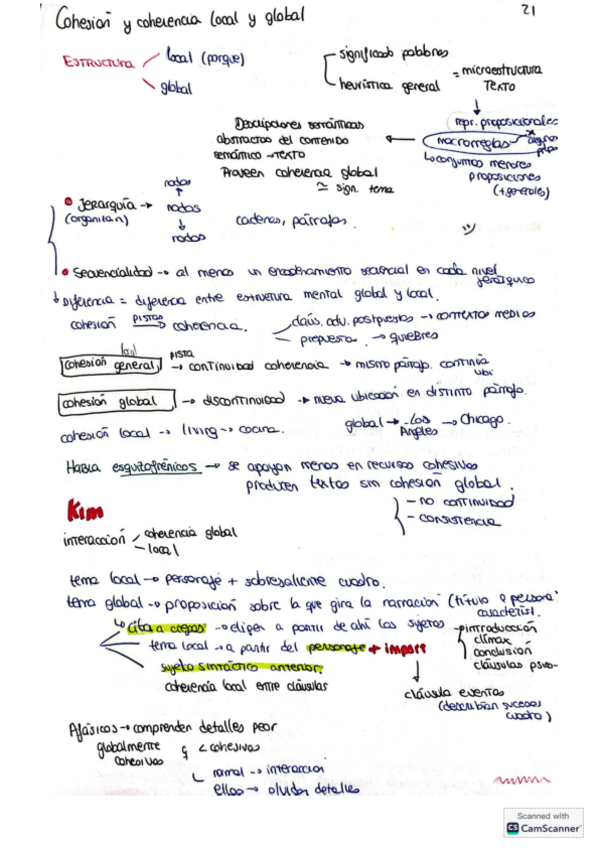 Cohesion y coherencia local y global
21
ESTRUCTURA
local (porque)
global
significado palabras
heurística general
= microestructura
TEXTO
repr. proposicionales
macrorreglas
conjuntos menores
proposiciones
(+generales)
Descripciones semánticas
abstractas del contenido
semántico → TEXTO
Proveen coherencia global
≃ sign. tema
• Jerarquía → nodos
(organizan)
nodos
nodos
cadenas, párrafos.
• Secuencialidad → al menos un encadenamiento secuencial en cada nivel
jerárquico
↓ Diferencia = diferencia entre estructura mental global y local.
cohesión PISTAS → coherencia.
claús. adv. postpuestas → contextos medios
prepuesta. → quiebres
local
cohesión general → PISTA CONTINUIDAD coherencia → mismo párrafo. continúa
ubi
cohesión global → DISCONTINUIDAD → nueva ubicación en distinto párrafo.
cohesión local → living → cocina.
global → Los Ángeles → Chicago.
Habla esquizofrénicos → se apoyan menos en recursos cohesivos
producen textos sin cohesión global.
- NO CONTINUIDAD
- CONSISTENCIA
Kim
interacción
coherencia global
local
tema local → personaje + sobresaliente cuadro.
tema global → proposición sobre la que gira la narración (título o persona
característ.
cita a ciegas → eligen a partir de ahí los sujetos
tema local → a partir del personaje + import
sujeto sintáctico anterior.
coherencia local entre cláusulas
introducción
clímax
conclusión
cláusulas psico-
cláusula eventos
(describían sucesos
cuadro)
Afásicos → comprenden detalles peor
globalmente
cohesivos
< cohesivos
normal → interacción
ellos → olvidar detalles
Scanned with
CS CamScanner